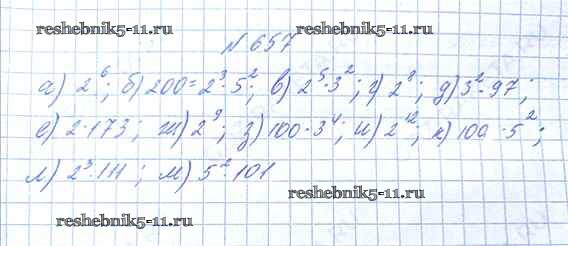 reshebnik5-11.ru reshebnik5-11.ru
№ 657
а) 2⁶; б) 200 = 2³·5²; в) 2⁵·3²; г) 2⁸; д) 3²·97;
е) 2·173; ж) 2⁹; з) 100·3⁴; и) 2¹²; к) 100·5²;
л) 2³·111; м) 5²·101
reshebnik5-11.ru
reshebnik5-11.ru